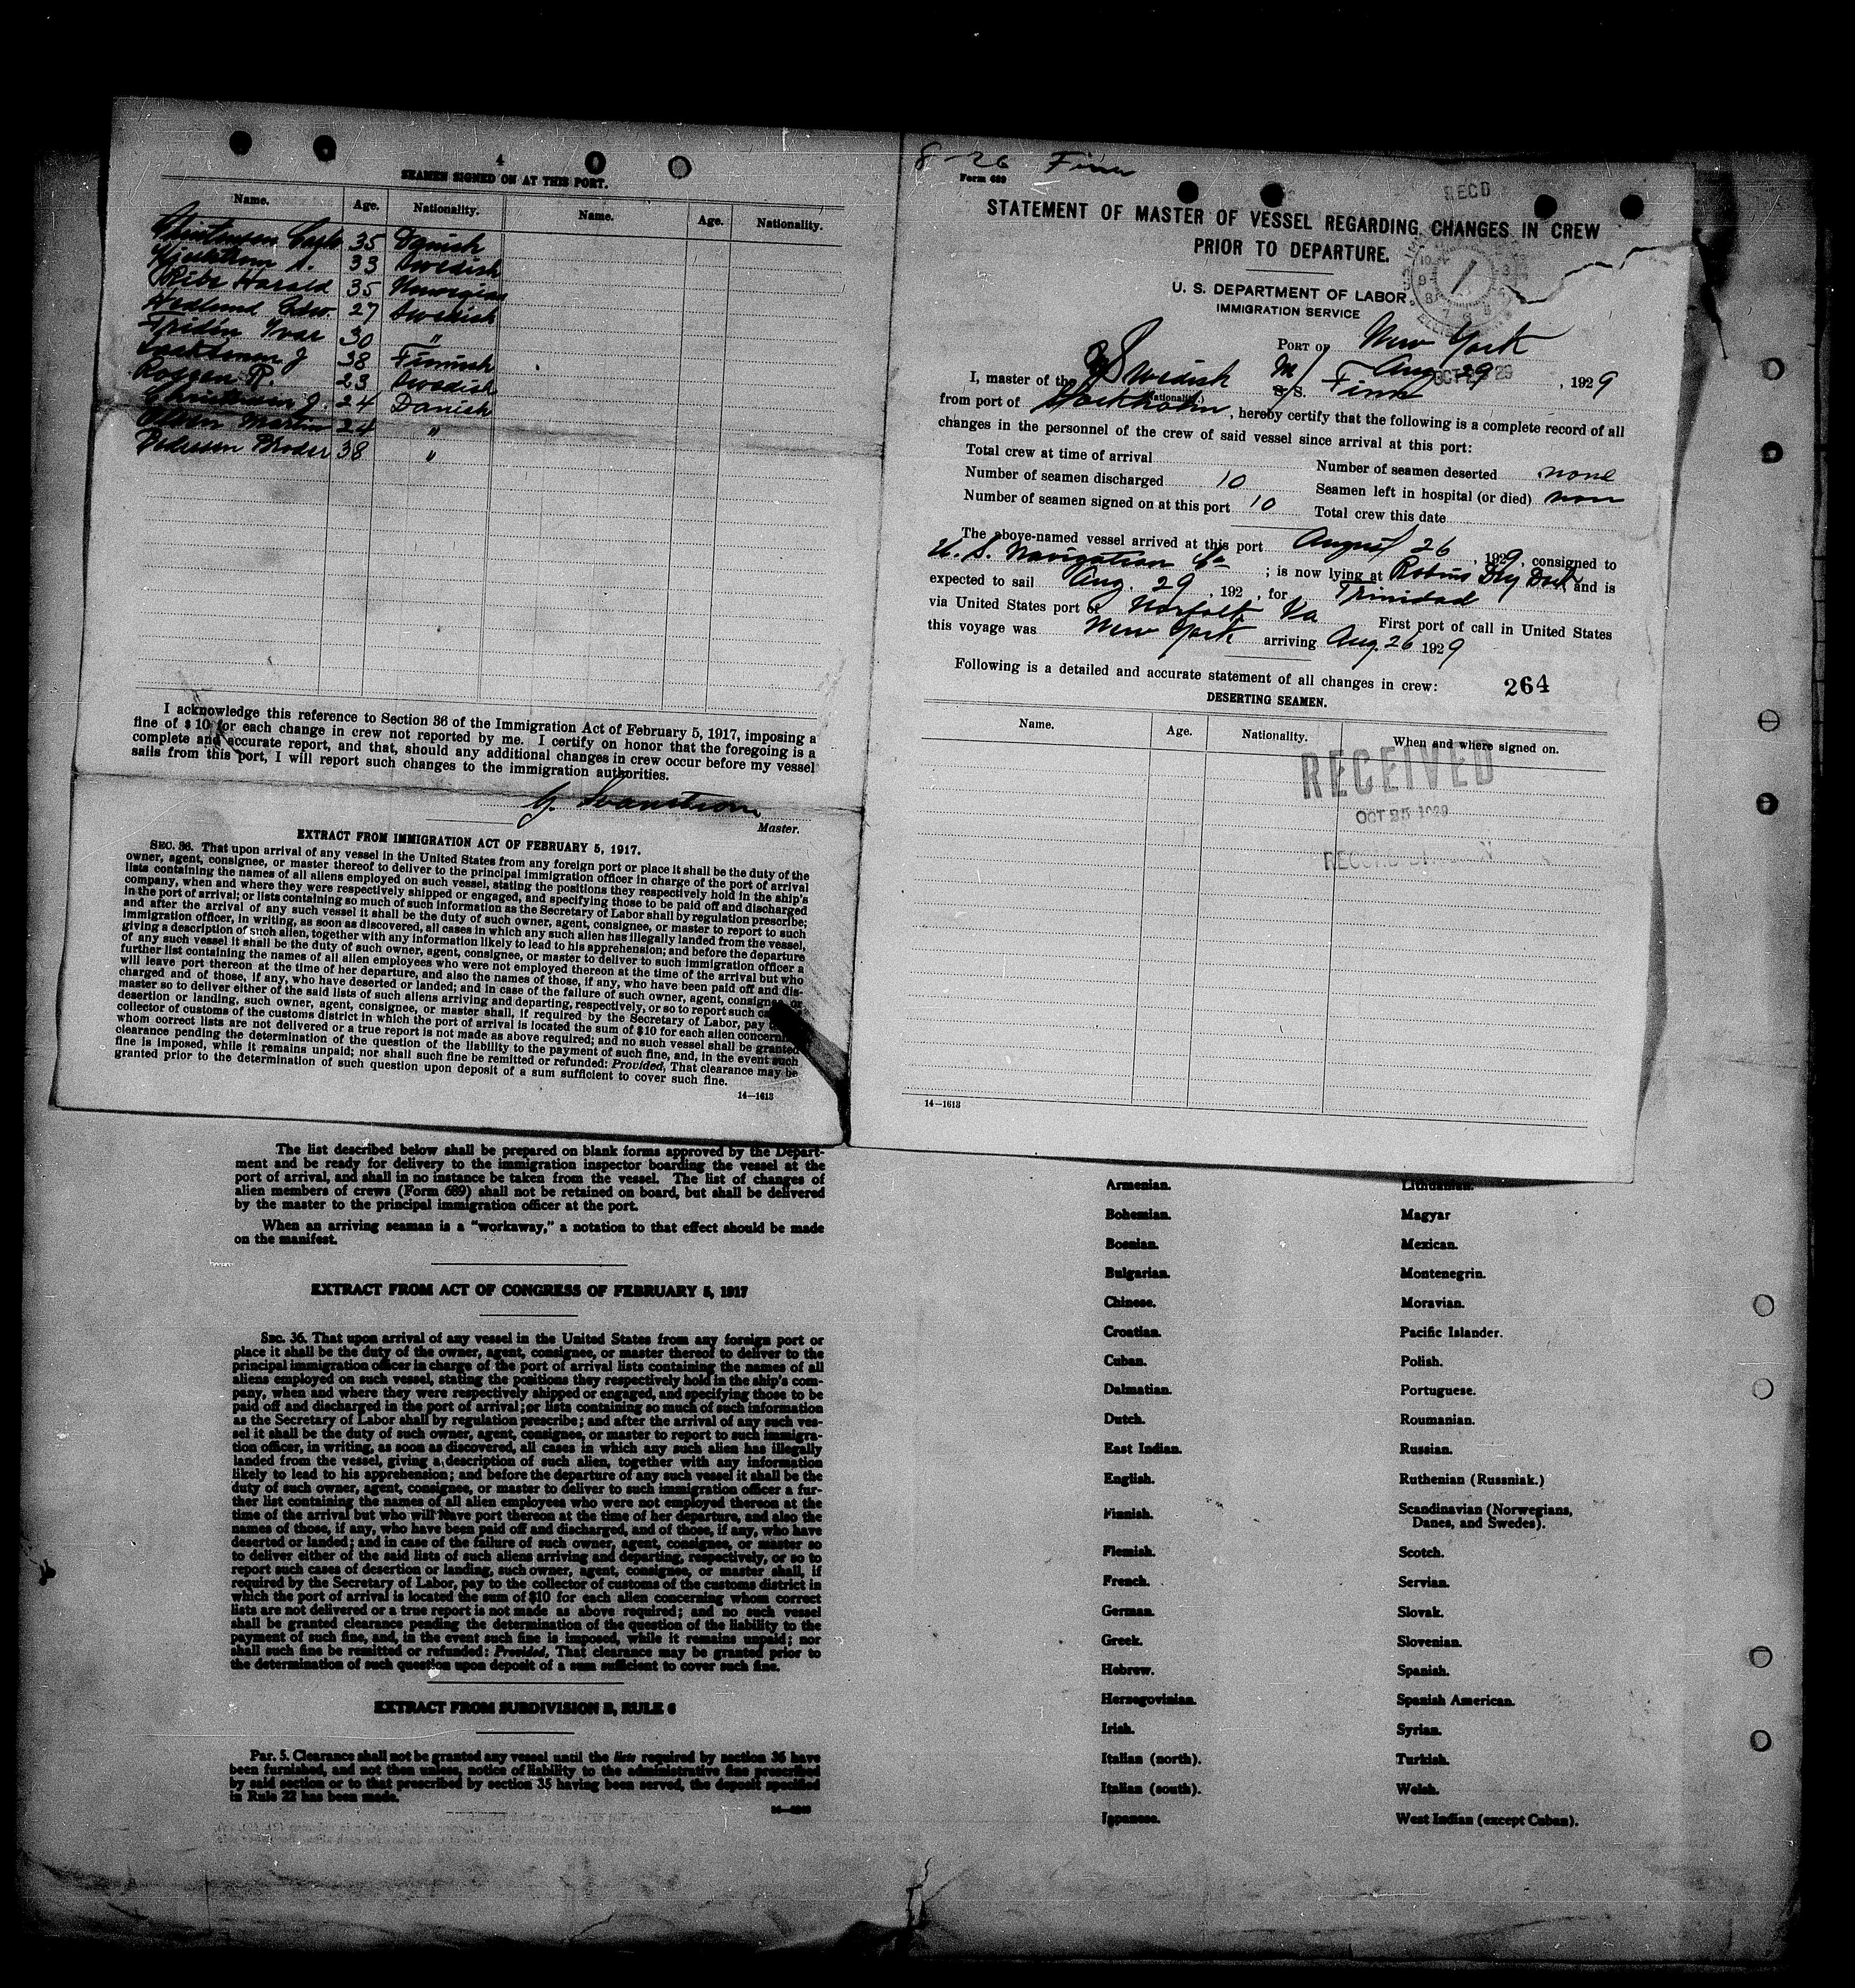 4
SEAMEN SIGNED ON AT THIS PORT.
Name. Age. Nationality. Name. Age. Nationality.
35 Danish
33 Swedish
Harald 35 Norwegian
Hedlund Edw. 27 Swedish
Fridén Ivar 30 "
J 38 Finnish
R. 23 Swedish
J. 24 Danish
Martin 24 "
Pedersen Broder 38 "
I acknowledge this reference to Section 36 of the Immigration Act of February 5, 1917, imposing a
fine of $10 for each change in crew not reported by me. I certify on honor that the foregoing is a
complete and accurate report, and that, should any additional changes in crew occur before my vessel
sails from this port, I will report such changes to the immigration authorities.
Master.
EXTRACT FROM IMMIGRATION ACT OF FEBRUARY 5, 1917.
SEC. 36. That upon arrival of any vessel in the United States from any foreign port or place it shall be the duty of the
owner, agent, consignee, or master thereof to deliver to the principal immigration officer in charge of the port of arrival
lists containing the names of all aliens employed on such vessel, stating the positions they respectively hold in the ship's
company, when and where they were respectively shipped or engaged, and specifying those to be paid off and discharged
in the port of arrival; or lists containing so much of such information as the Secretary of Labor shall by regulation prescribe;
and after the arrival of any such vessel it shall be the duty of such owner, agent, consignee, or master to report to such
immigration officer, in writing, as soon as discovered, all cases in which any such alien has illegally landed from the vessel,
giving a description of such alien, together with any information likely to lead to his apprehension; and before the departure
of any such vessel it shall be the duty of such owner, agent, consignee, or master to deliver to such immigration officer a
further list containing the names of all alien employees who were not employed thereon at the time of the arrival but who
will leave port thereon at the time of her departure, and also the names of those, if any, who have been paid off and dis-
charged and of those, if any, who have deserted or landed; and in case of the failure of such owner, agent, consignee, or
master so to deliver either of the said lists of such aliens arriving and departing, respectively, or so to report such
desertion or landing, such owner, agent, consignee, or master shall, if required by the Secretary of Labor, pay
collector of customs of the customs district in which the port of arrival is located the sum of $10 for each alien
whom correct lists are not delivered or a true report is not made as above required; and no such vessel shall be granted
clearance pending the determination of the question of the liability to the payment of such fine, and, in the event such
fine is imposed, while it remains unpaid; nor shall such fine be remitted or refunded: Provided, That clearance may be
granted prior to the determination of such question upon deposit of a sum sufficient to cover such fine.
14—1613
8-26 Finn
Form 689
REC'D
STATEMENT OF MASTER OF VESSEL REGARDING CHANGES IN CREW
PRIOR TO DEPARTURE.
U. S. DEPARTMENT OF LABOR
IMMIGRATION SERVICE
PORT OF New York
Aug 29, 1929
I, master of the Swedish M/S. Finn
(Nationality)
from port of Stockholm, hereby certify that the following is a complete record of all
changes in the personnel of the crew of said vessel since arrival at this port:
Total crew at time of arrival
Number of seamen deserted none
Number of seamen discharged 10
Seamen left in hospital (or died) non
Number of seamen signed on at this port 10
Total crew this date
The above-named vessel arrived at this port August 26, 1929, consigned to
U. S. Navigation Co; is now lying at Robins Dry Dock and is
expected to sail Aug. 29, 192 , for Trinidad
via United States port of Norfolk Va First port of call in United States
this voyage was New York arriving Aug. 26 1929
Following is a detailed and accurate statement of all changes in crew: 264
DESERTING SEAMEN.
Name. Age. Nationality. When and where signed on.
RECEIVED
OCT 25 1929
RECORD DIVISION
14—1613
The list described below shall be prepared on blank forms approved by the Depart-
ment and be ready for delivery to the immigration inspector boarding the vessel at the
port of arrival, and shall in no instance be taken from the vessel. The list of changes of
alien members of crews (Form 689) shall not be retained on board, but shall be delivered
by the master to the principal immigration officer at the port.
When an arriving seaman is a "workaway," a notation to that effect should be made
on the manifest.
EXTRACT FROM ACT OF CONGRESS OF FEBRUARY 5, 1917
SEC. 36. That upon arrival of any vessel in the United States from any foreign port or
place it shall be the duty of the owner, agent, consignee, or master thereof to deliver to the
principal immigration officer in charge of the port of arrival lists containing the names of all
aliens employed on such vessel, stating the positions they respectively hold in the ship's com-
pany, when and where they were respectively shipped or engaged, and specifying those to be
paid off and discharged in the port of arrival; or lists containing so much of such information
as the Secretary of Labor shall by regulation prescribe; and after the arrival of any such ves-
sel it shall be the duty of such owner, agent, consignee, or master to report to such immigra-
tion officer, in writing, as soon as discovered, all cases in which any such alien has illegally
landed from the vessel, giving a description of such alien, together with any information
likely to lead to his apprehension; and before the departure of any such vessel it shall be the
duty of such owner, agent, consignee, or master to deliver to such immigration officer a fur-
ther list containing the names of all alien employees who were not employed thereon at the
time of the arrival but who will leave port thereon at the time of her departure, and also the
names of those, if any, who have been paid off and discharged, and of those, if any, who have
deserted or landed; and in case of the failure of such owner, agent, consignee, or master so
to deliver either of the said lists of such aliens arriving and departing, respectively, or so to
report such cases of desertion or landing, such owner, agent, consignee, or master shall, if
required by the Secretary of Labor, pay to the collector of customs of the customs district in
which the port of arrival is located the sum of $10 for each alien concerning whom correct
lists are not delivered or a true report is not made as above required; and no such vessel
shall be granted clearance pending the determination of the question of the liability to the
payment of such fine, and, in the event such fine is imposed, while it remains unpaid; nor
shall such fine be remitted or refunded: Provided, That clearance may be granted prior to
the determination of such question upon deposit of a sum sufficient to cover such fine.
EXTRACT FROM SUBDIVISION B, RULE 6
Par. 5. Clearance shall not be granted any vessel until the lists required by section 36 have
been furnished, and not then unless, notice of liability to the administrative fine prescribed
by said section or to that prescribed by section 35 having been served, the deposit specified
in Rule 22 has been made.
Armenian. Lithuanian.
Bohemian. Magyar
Bosnian. Mexican.
Bulgarian. Montenegrin.
Chinese. Moravian.
Croatian. Pacific Islander.
Cuban. Polish.
Dalmatian. Portuguese.
Dutch. Roumanian.
East Indian. Russian.
English. Ruthenian (Russniak.)
Finnish. Scandinavian (Norwegians,
Danes, and Swedes).
Flemish. Scotch.
French. Servian.
German. Slovak.
Greek. Slovenian.
Hebrew. Spanish.
Herzegovinian. Spanish American.
Irish. Syrian.
Italian (north). Turkish.
Italian (south). Welsh.
Japanese. West Indian (except Cuban).